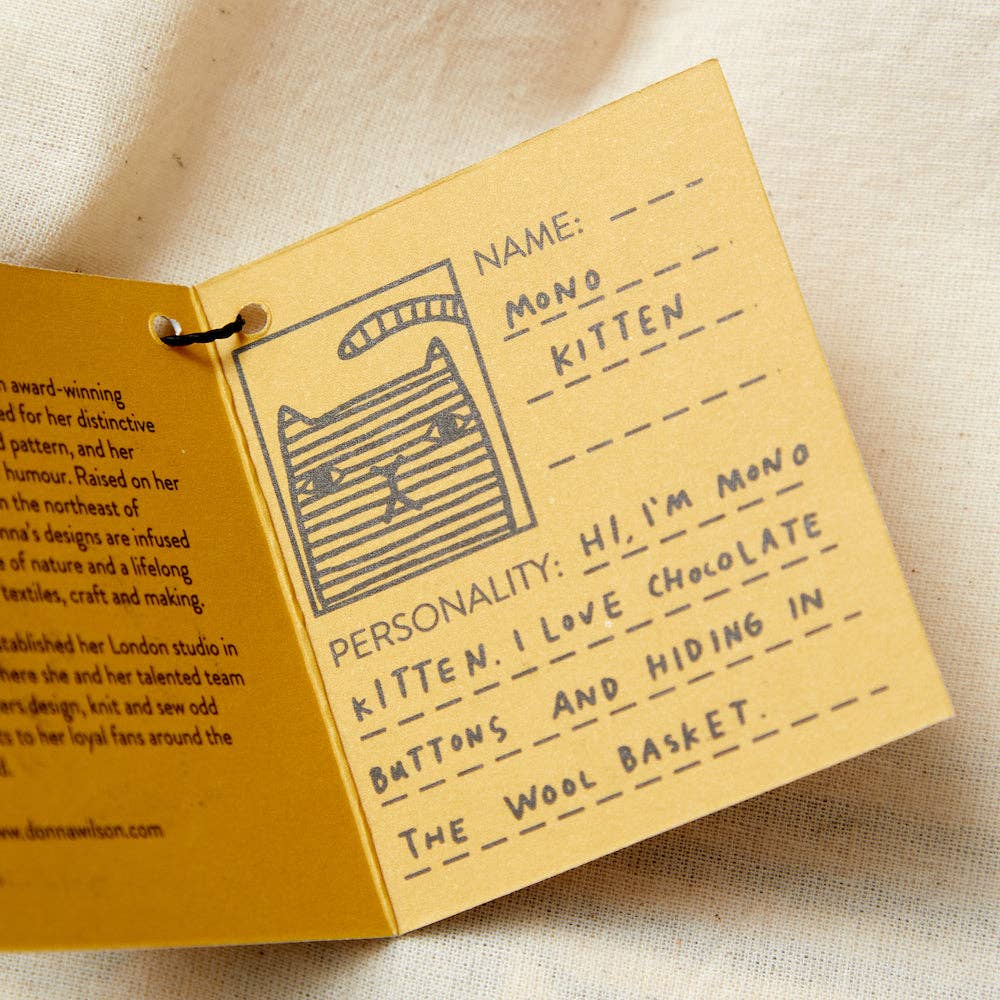 award-winning
for her distinctive
pattern, and her
humour. Raised on her
the northeast of
designs are infused
of nature and a lifelong
textiles, craft and making.
her London studio in
she and her talented team
design, knit and sew odd
to her loyal fans around the
www.donnawilson.com
NAME:
MONO
KITTEN
PERSONALITY: HI, I'M MONO
KITTEN. I LOVE CHOCOLATE
BUTTONS AND HIDING IN
THE WOOL BASKET.